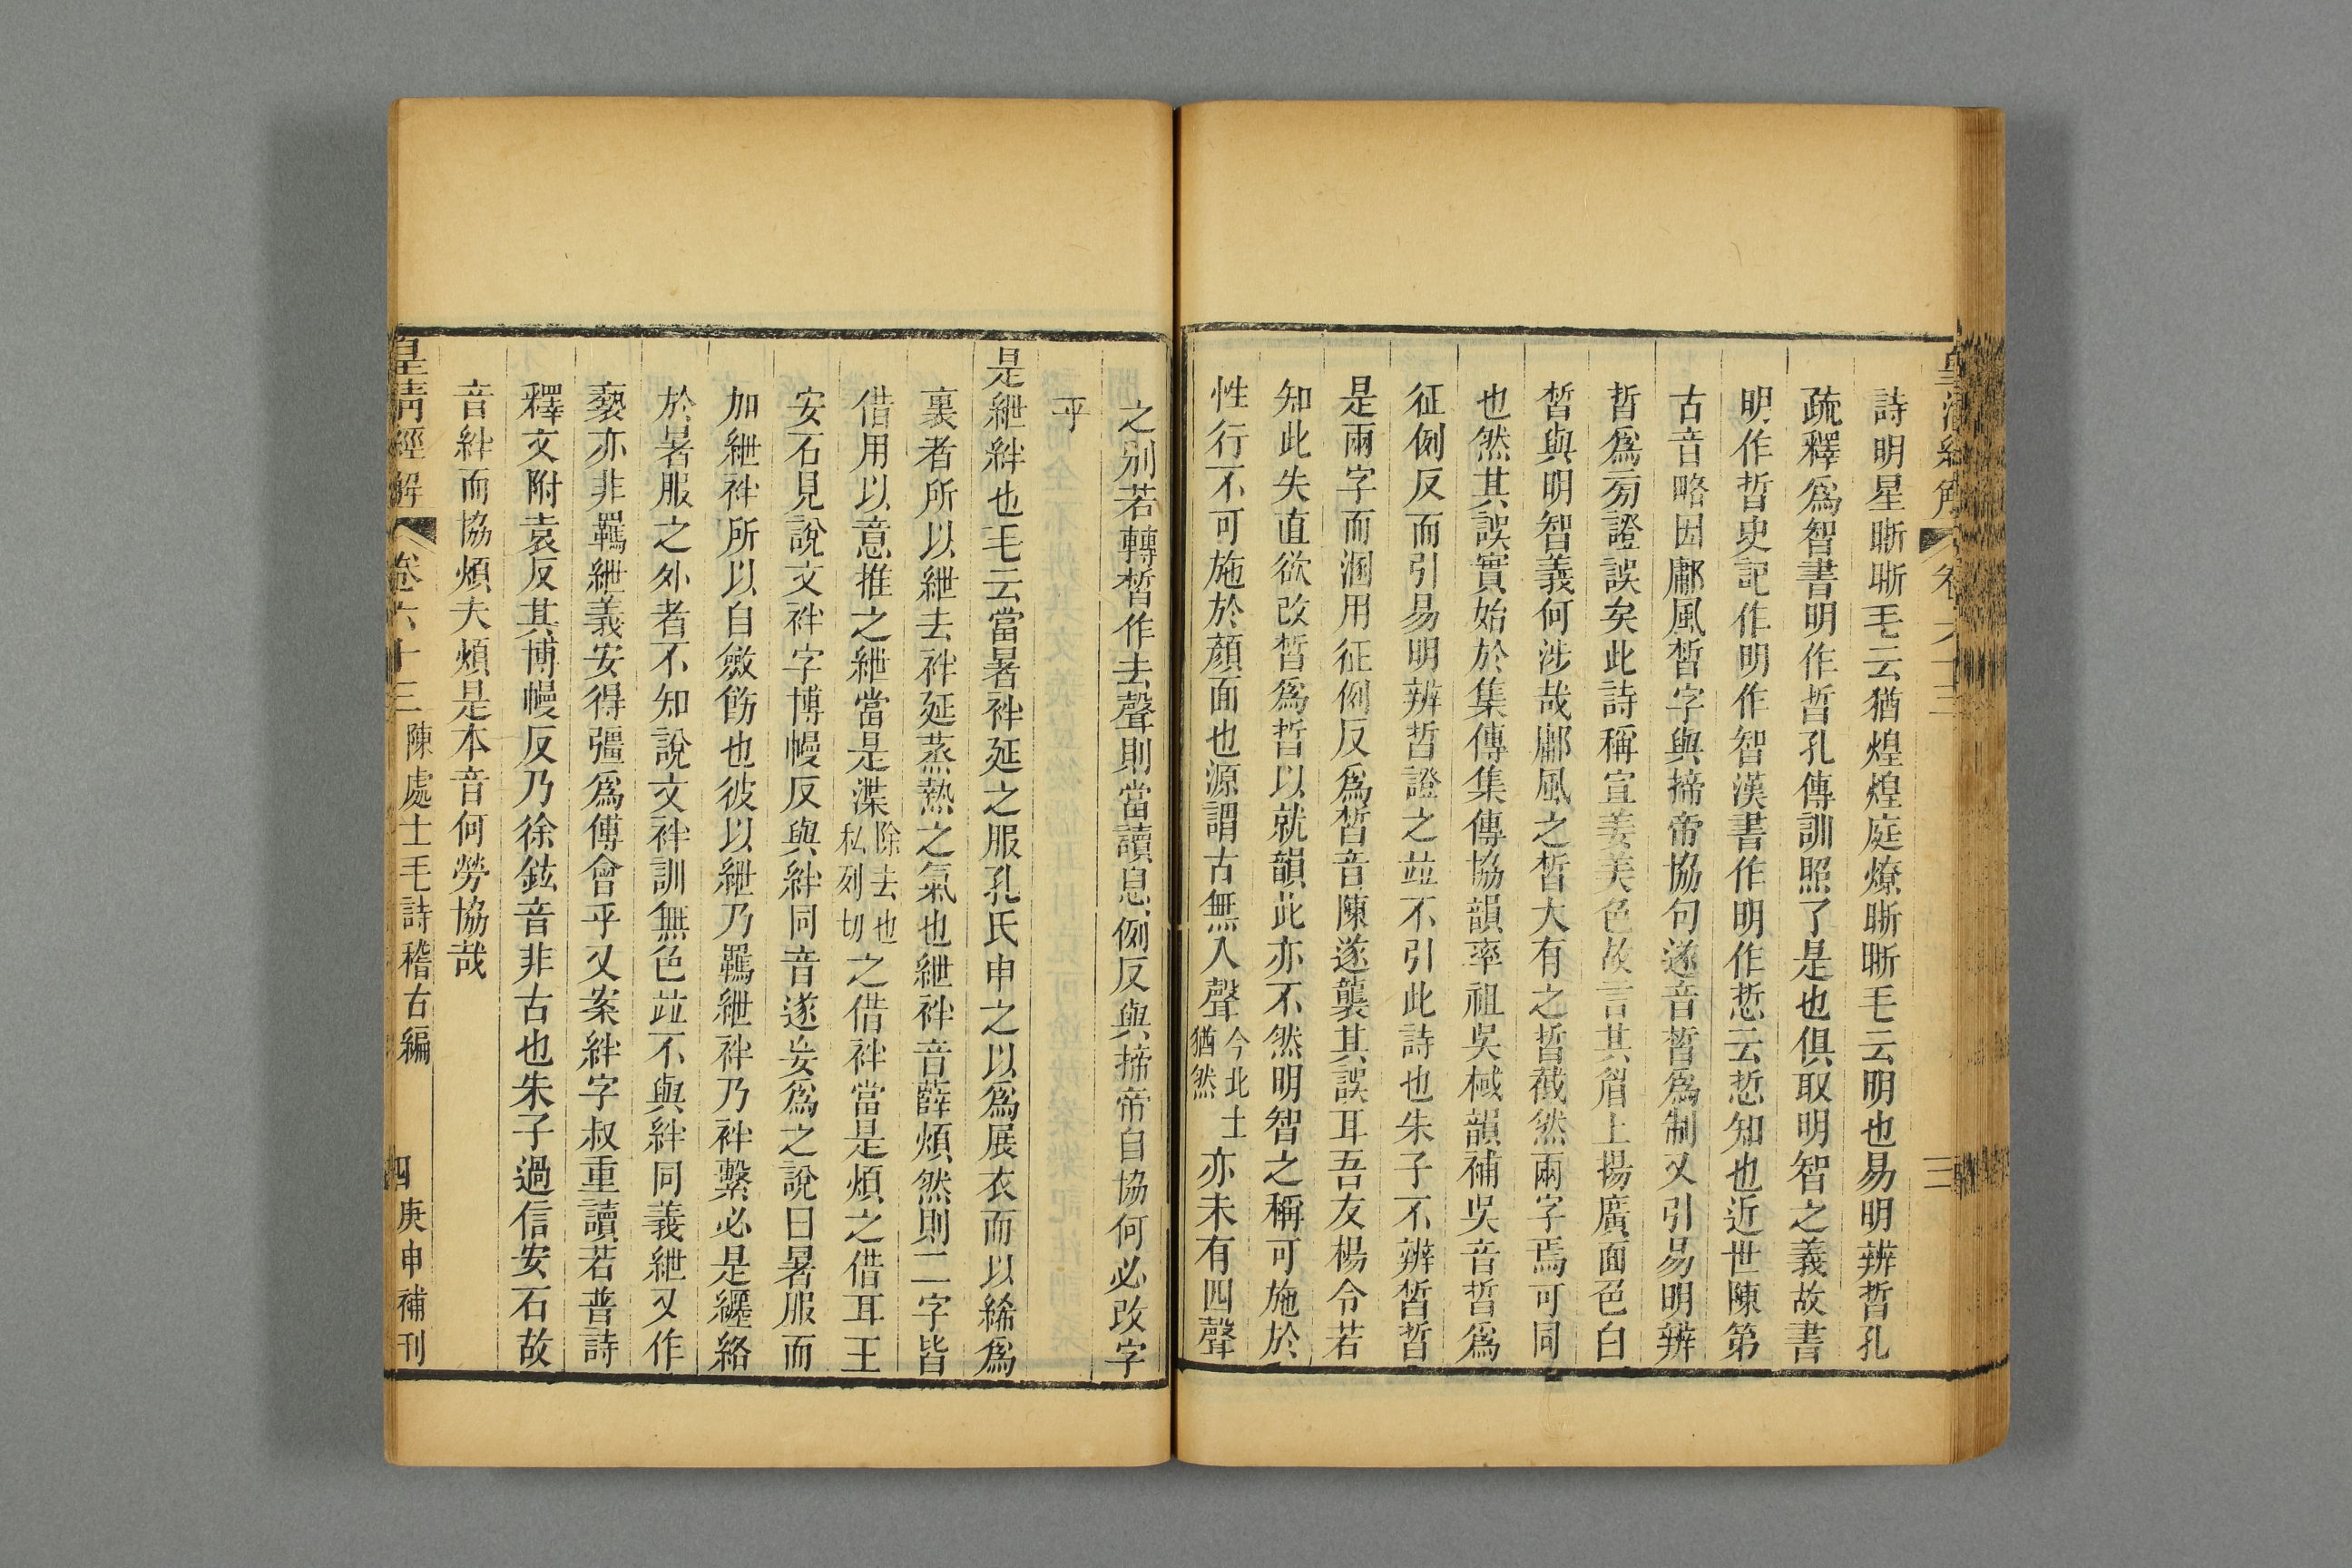 皇清經解 卷六十三 三
詩明星晣晣毛云猶煌煌庭燎晣晣毛云明也易明辨晢孔
疏釋爲智書明作晢孔傳訓照了是也俱取明智之義故書
明作晢史記作明作智漢書作明作悊云悊知也近世陳第
古音略因鄘風晳字與揥帝協句遂音晳爲制又引易明辨
晢爲旁證誤矣此詩稱宣姜美色故言其眉上揚廣面色白
晳與明智義何涉哉鄘風之晳大有之晢截然兩字焉可同
也然其誤實始於集傳集傳協韻率祖吳棫韻補吳音晢爲
征例反而引易明辨晢證之竝不引此詩也朱子不辨晳晢
是兩字而溷用征例反爲晳音陳遂襲其誤耳吾友楊令若
知此失直欲改晳爲晢以就韻此亦不然明智之稱可施於
性行不可施於顏面也源謂古無入聲今北土猶然亦未有四聲
之別若轉晳作去聲則當讀息例反與揥帝自協何必改字
乎
是紲絆也毛云當暑袢延之服孔氏申之以爲展衣而以絺爲
裏者所以紲去袢延蒸熱之氣也紲袢音薛煩然則二字皆
借用以意推之紲當是渫除去也私列切之借袢當是煩之借耳王
安石見說文袢字博幔反與絆同音遂妄爲之說曰暑服而
加紲袢所以自斂飭也彼以紲乃羈紲袢乃袢繫必是纒絡
於暑服之外者不知說文袢訓無色竝不與絆同義紲又作
褻亦非羈紲義安得彊爲傅會乎又案絆字叔重讀若普詩
釋文附袁反其博幔反乃徐鉉音非古也朱子過信安石故
音絆而協煩夫煩是本音何勞協哉
皇清經解 卷六十三 陳處士毛詩稽古編 四 庚申補刊